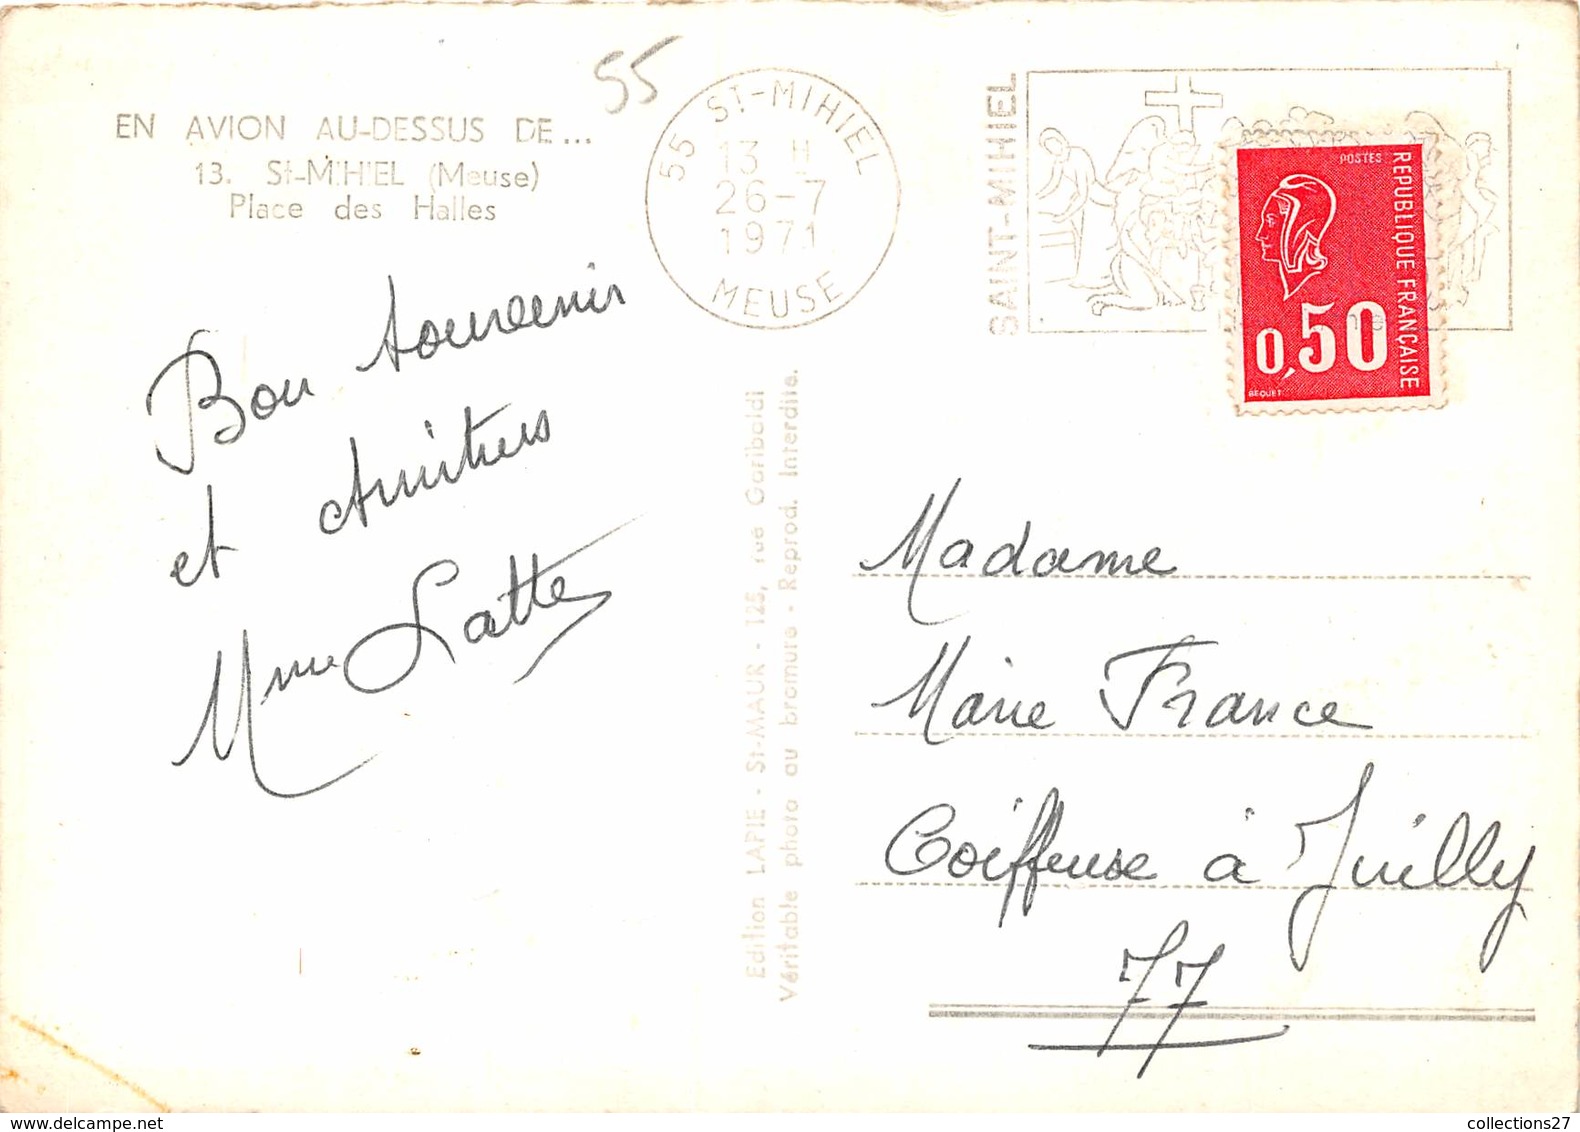 55
EN AVION AU-DESSUS DE...
13. St-MIHIEL (Meuse)
Place des Halles
55 ST-MIHIEL
13 H
26-7
1971
MEUSE
SAINT-MIHIEL
POSTES
REPUBLIQUE FRANÇAISE
0,50
BEQUET
Bon souvenir
et Amitiés
Mme Latte
Edition LAPIE - St-MAUR - 125, rue Garibaldi
Véritable photo au bromure - Reprod. Interdite.
Madame
Marie France
Coiffeuse à Juilly
77
collections27